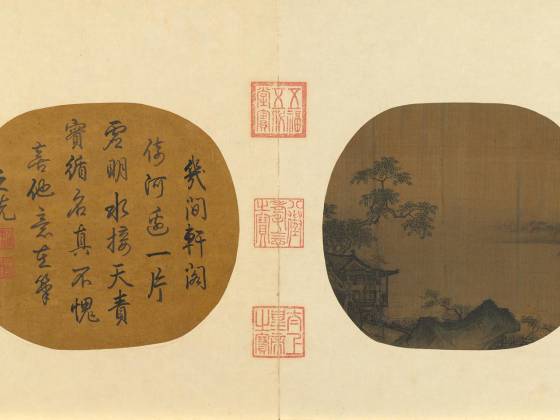 五福五代堂寶
八徵耄念之寶
太上皇帝之寶
幾間軒閣
倚河邊一片
虛明水接天責
實循名真不愧
喜他意在筆
之先